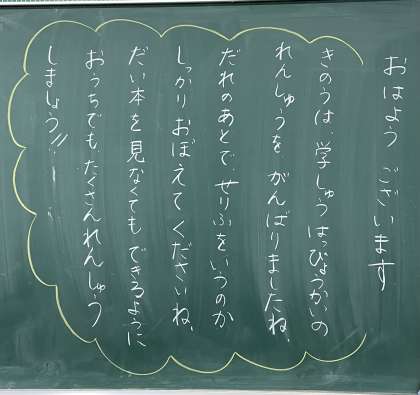 おはよう ございます
きのうは、学しゅうはっぴょうかいの
れんしゅうを、がんばりましたね。
だれのあとで、せりふをいうのか
しっかりおぼえてくださいね。
だい本を見なくてもできるように
おうちでも、たくさんれんしゅう
しましょう!!